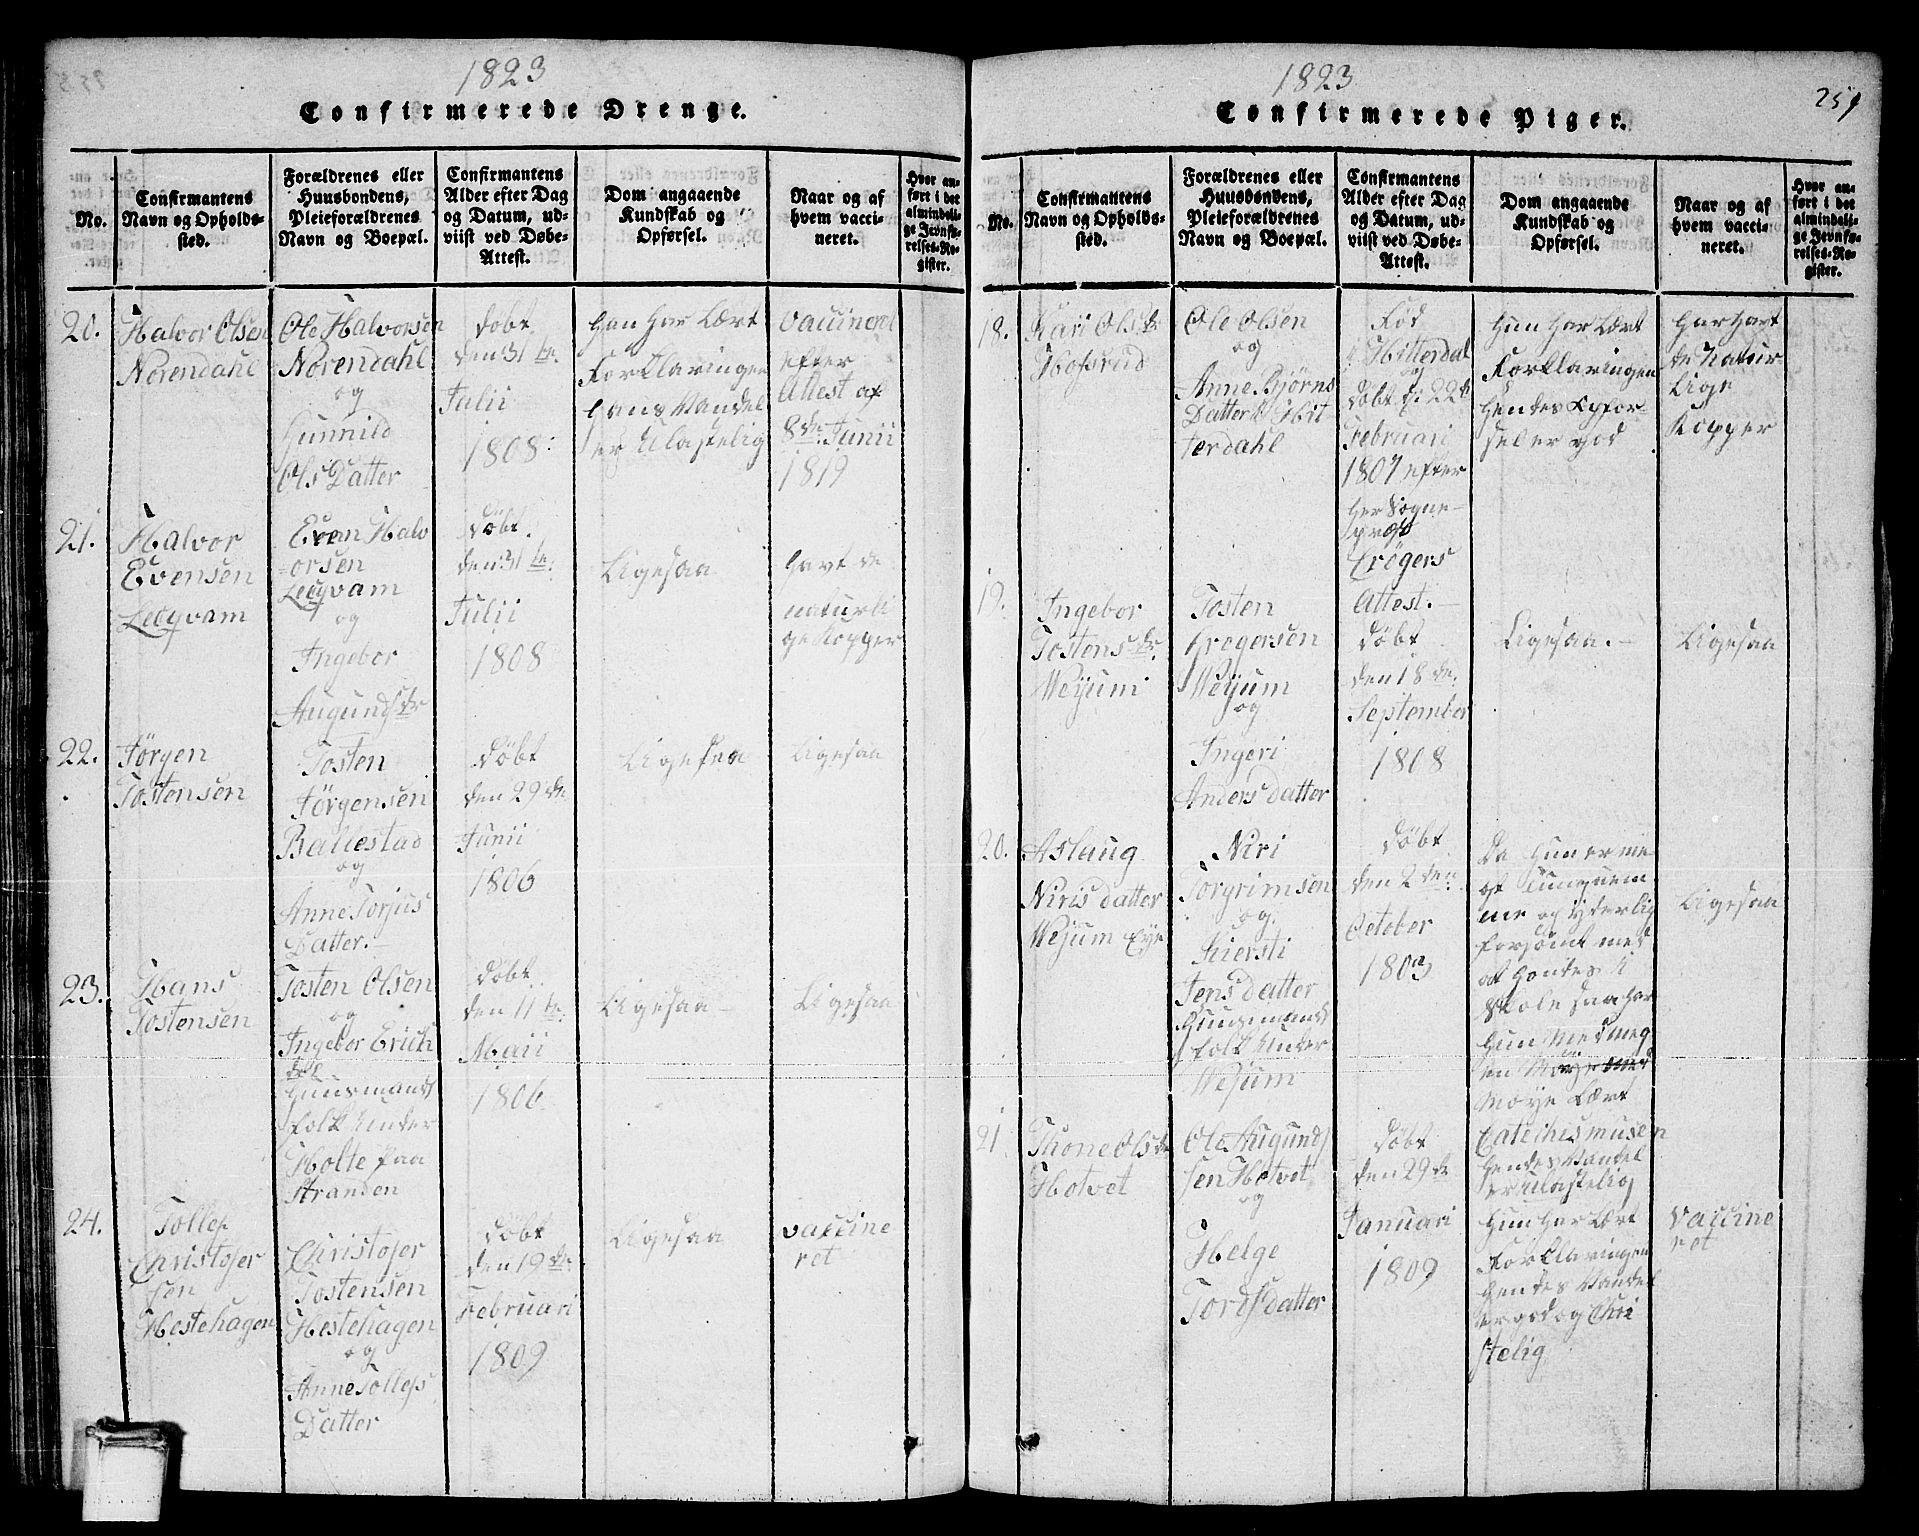 1823
Confirmerede Drenge.
No.
Confirmantens
Navn og Opholds-
sted.
Forældrenes eller
Huusbondens,
Pleieforældrenes
Navn og Boepæl.
Confirmantens
Alder efter Dag
og Datum, ud-
viist ved Døbe-
Attest.
Dom angaaende
Kundskab og
Opførsel.
Naar og af
hvem vacci-
neret.
Hvor an-
ført i det
almindeli-
ge Jevnfø-
relses-Re-
gister.
20.
Halvor Olsen
Norendahl
Ole Halvorsen
Norendahl
og
Gunnild
Ols Datter
døbt
den 31 te
Julii
1808:
han har Lært
Forklaringen
hans Vandel
er Ulastelig
efter
Attest af
8de Junii
1819
21.
Halvor
Evensen
Even Halv
orsen
og
Ingebor
Augunds dr
døbt
den 31 te
Julii
1808
Ligesaa
havt de
naturli
ge Kopper
22.
Jørgen
Tostensen
Tosten
Jørgensen
Ballestad
og
Anne Torjus
Datter.-
døbt
den 29 de
Junii
1806
Ligesaa
Ligesaa
23.
Hans
Tostensen
Tosten Olsen
og
Ingebor Erich
huusmands
folk Under
Holte paa
Stranden
døbt
den 11 te
Maii
1806
Ligesaa-
Ligesaa
24.
Tollef
Christofer
sen
Hestehagen
Christofer
Tostensen
Hestehagen
og
Anne Tollefs
Datter
døbt
den 19 de
Februari
1809
Ligesaa
vaccine
ret
1823
259
Confirmerede Piger.
No.
Confirmantens
Navn og Opholds-
sted.
Forældrenes eller
Huusbondens,
Pleieforældrenes
Navn og Boepæl.
Confirmantens
Alder efter Dag
og Datum, ud-
viist ved Døbe-
Attest.
Dom angaaende
Kundskab og
Opførsel.
Naar og af
hvem vacci-
neret.
Hvor an-
ført i det
almindeli-
ge Jevnfø-
relses-Re-
gister.
18.
Kari Ols dr
Ole Olsen
og
Anne Bjørns
Datter i Hit
terdahl
Fød
i Hitterdal
og
Døbt
Februari
1807 efter
Her Sogne-
prost
Crøgers
Attest.-
hun har Lært
Forklaringen
hendes Opfør-
sel er god
har hart
de Natur
lige
Kopper
19.
Ingebor
Tostens dr
Wejum
Tosten
Gregersen
Wejum
og
Ingeri
Anders datter
døbt
den 18 de
September
1808
Ligesaa.-
Ligesaa
20.
Aslaug
Niris datter
Wejum Eje
Niri
Torgrimsen
og
Kiersti
Jens datter
Huusmands
folk Under
Wejum
døbt
den 2 den
October
1803
Da hun er me
get tungnem
me og yderlig
forsømt med
at holdes i
Skole saa har
hun med meg
en
Møye Lært
Catechismusen
hendes Vandel
er Ulastelig
Ligesaa
21
Thone Ols dr
Hotvet
Ole Augunds
sen Hotvet
og
Helge
Tords datter
døbt
den 29 de
Januari
1809
hun har Lært
Forklaringen
hendes Vandel
er god og Chri
stelig
Vaccine
ret